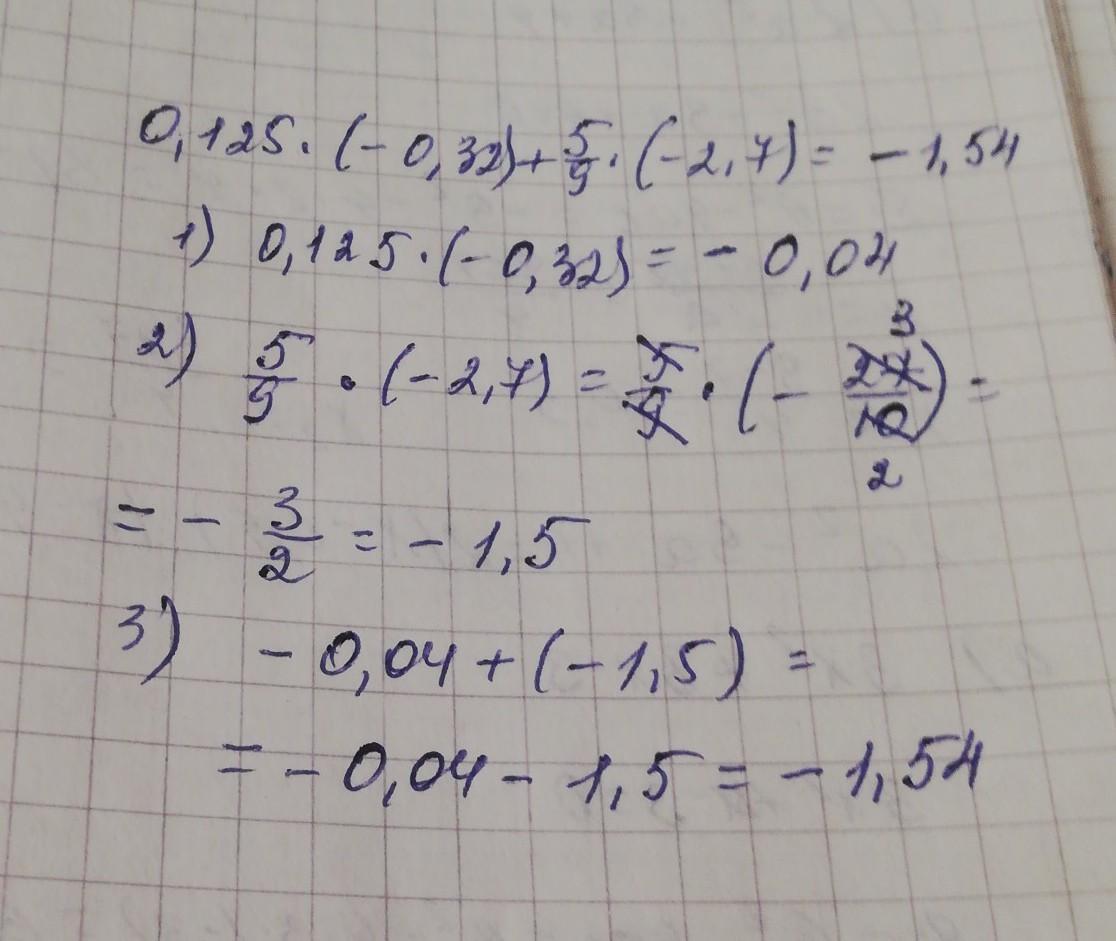 0,125 · (- 0,32) + 5/9 · (-2,7) = - 1,54
1) 0,125 · (- 0,32) = - 0,04
2) 5/9 · (-2,7) = 5/9 · (- 27/10) = 3 2
= - 3/2 = - 1,5
3) - 0,04 + (- 1,5) =
= - 0,04 - 1,5 = - 1,54